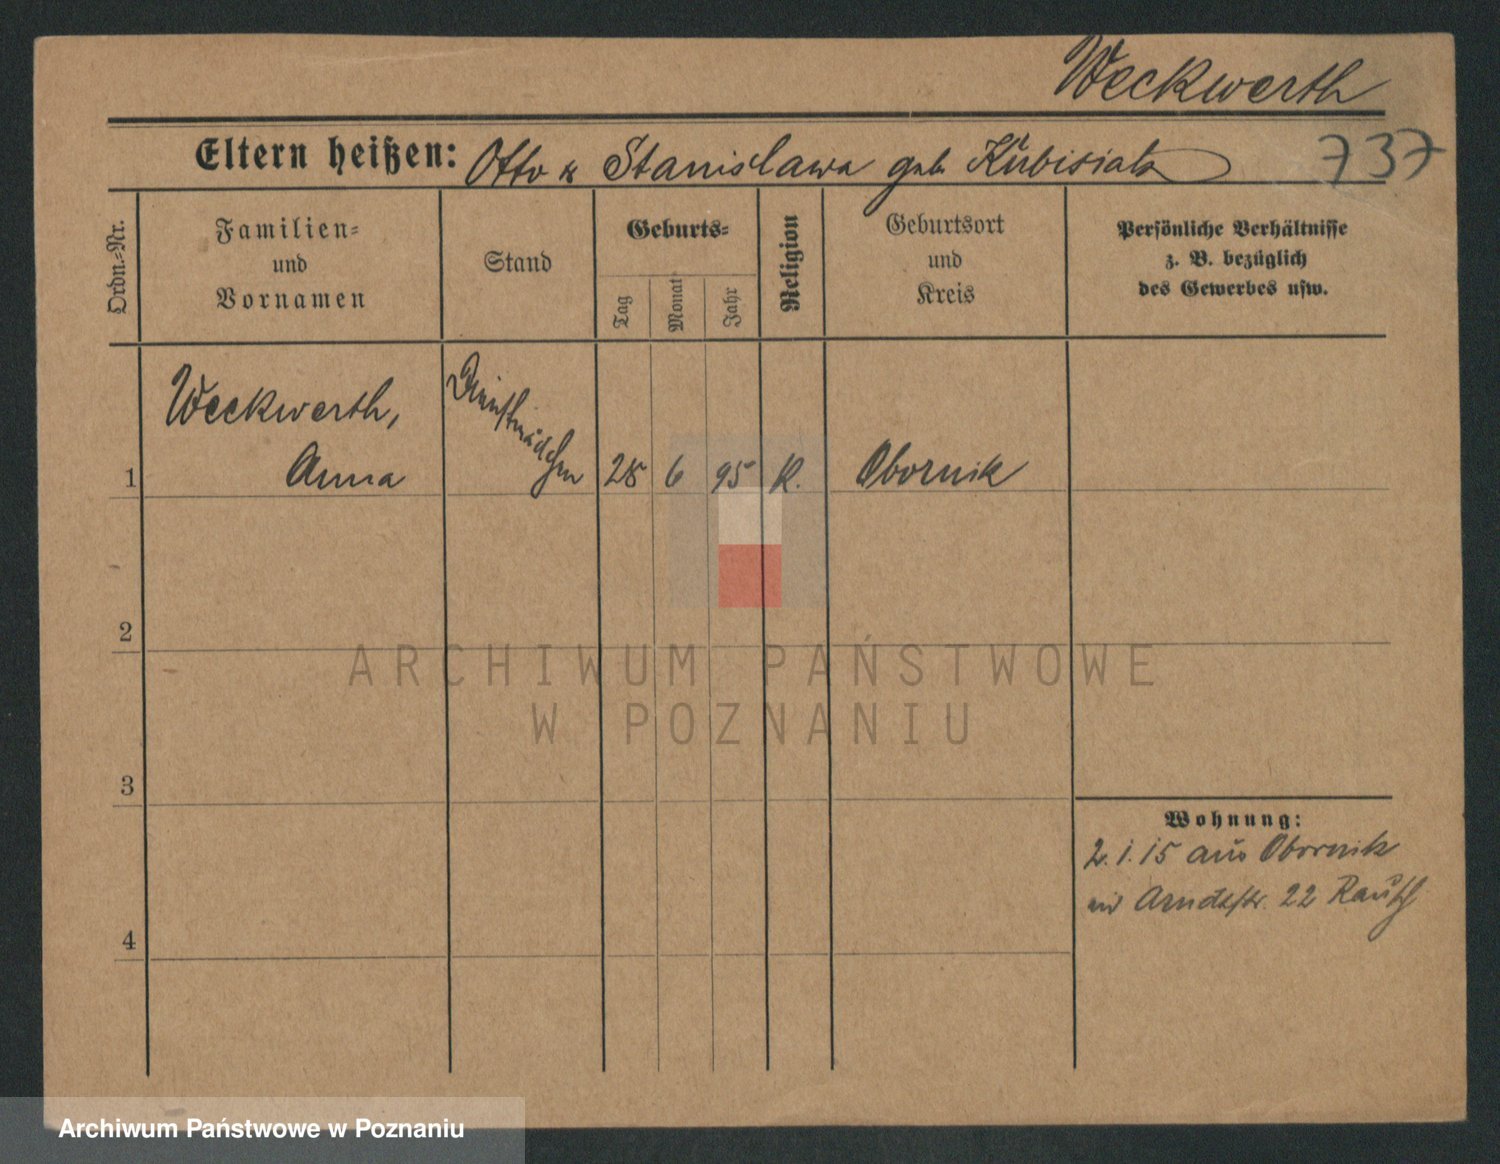 Weckwerth
Eltern heißen: Otto u Stanislawa geb. Kubisiak
737
Ordn.-Nr.
Familien-
und
Vornamen
Stand
Geburts-
Tag
Monat
Jahr
Religion
Geburtsort
und
Kreis
Persönliche Verhältnisse
z. B. bezüglich
des Gewerbes usw.
Weckwerth,
Dienstmädchen
1 Anna 28 6 95 K. Obornik
2
ARCHIWUM PAŃSTWOWE
W POZNANIU
3
Wohnung:
2.1.15 aus Obornik
Arndtstr. 22
4
Archiwum Państwowe w Poznaniu